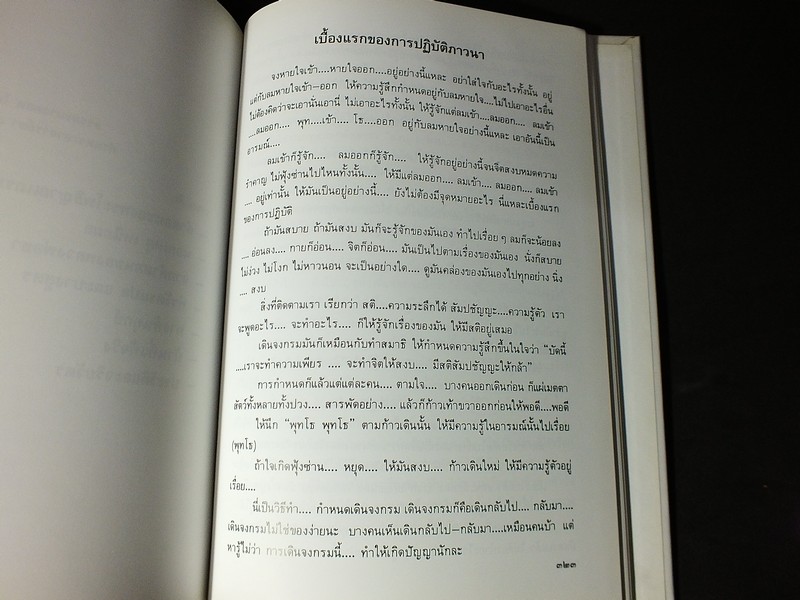 เบื้องแรกของการปฏิบัติภาวนา
จงหายใจเข้า....หายใจออก....อยู่อย่างนี้แหละ อย่าใส่ใจกับอะไรทั้งนั้น อยู่
แต่กับลมหายใจเข้า–ออก ให้ความรู้สึกกำหนดอยู่กับลมหายใจ....ไม่ไปเอาอะไรอื่น
ไม่ต้องคิดว่าจะเอานั่นเอานี่ ไม่เอาอะไรทั้งนั้น ให้รู้จักแต่ลมเข้า....ลมออก.... ลมเข้า
....ลมออก.... พุท....เข้า.... โธ....ออก อยู่กับลมหายใจอย่างนี้แหละ เอาอันนี้เป็น
อารมณ์....
ลมเข้าก็รู้จัก.... ลมออกก็รู้จัก.... ให้รู้จักอยู่อย่างนี้จนจิตสงบหมดความ
รำคาญ ไม่ฟุ้งซ่านไปไหนทั้งนั้น.... ให้มีแต่ลมออก.... ลมเข้า.... ลมออก.... ลมเข้า
.... อยู่เท่านั้น ให้มันเป็นอยู่อย่างนี้.... ยังไม่ต้องมีจุดหมายอะไร นี่แหละเบื้องแรก
ของการปฏิบัติ
ถ้ามันสบาย ถ้ามันสงบ มันก็จะรู้จักของมันเอง ทำไปเรื่อย ๆ ลมก็จะน้อยลง
.... อ่อนลง.... กายก็อ่อน.... จิตก็อ่อน.... มันเป็นไปตามเรื่องของมันเอง นั่งก็สบาย
ไม่ง่วง ไม่โงก ไม่หาวนอน จะเป็นอย่างใด.... ดูมันคล่องของมันเองไปทุกอย่าง นิ่ง
.... สงบ
สิ่งที่ติดตามเรา เรียกว่า สติ....ความระลึกได้ สัมปชัญญะ....ความรู้ตัว เรา
จะพูดอะไร.... จะทำอะไร.... ก็ให้รู้จักเรื่องของมัน ให้มีสติอยู่เสมอ
เดินจงกรมมันก็เหมือนกับทำสมาธิ ให้กำหนดความรู้สึกขึ้นในใจว่า “บัดนี้
....เราจะทำความเพียร .... จะทำจิตให้สงบ.... มีสติสัมปชัญญะให้กล้า”
การกำหนดก็แล้วแต่แต่ละคน.... ตามใจ.... บางคนออกเดินก่อน ก็แผ่เมตตา
สัตว์ทั้งหลายทั้งปวง.... สารพัดอย่าง.... แล้วก็ก้าวเท้าขวาออกก่อนให้พอดี....พอดี
ให้นึก “พุทโธ พุทโธ” ตามก้าวเดินนั้น ให้มีความรู้ในอารมณ์นั้นไปเรื่อย
(พุทโธ)
ถ้าใจเกิดฟุ้งซ่าน.... หยุด.... ให้มันสงบ.... ก้าวเดินใหม่ ให้มีความรู้ตัวอยู่
เรื่อย....
นี่เป็นวิธีทำ.... กำหนดเดินจงกรม เดินจงกรมก็คือเดินกลับไป.... กลับมา....
เดินจงกรมไม่ใช่ของง่ายนะ บางคนเห็นเดินกลับไป–กลับมา....เหมือนคนบ้า แต่
หารู้ไม่ว่า การเดินจงกรมนี้.... ทำให้เกิดปัญญานักละ
๓๒๓